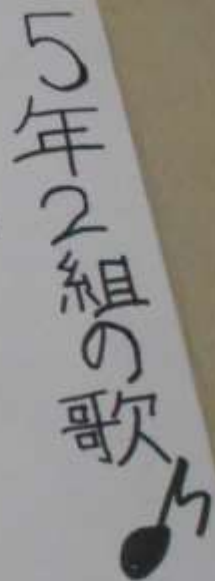 5年2組の歌♪